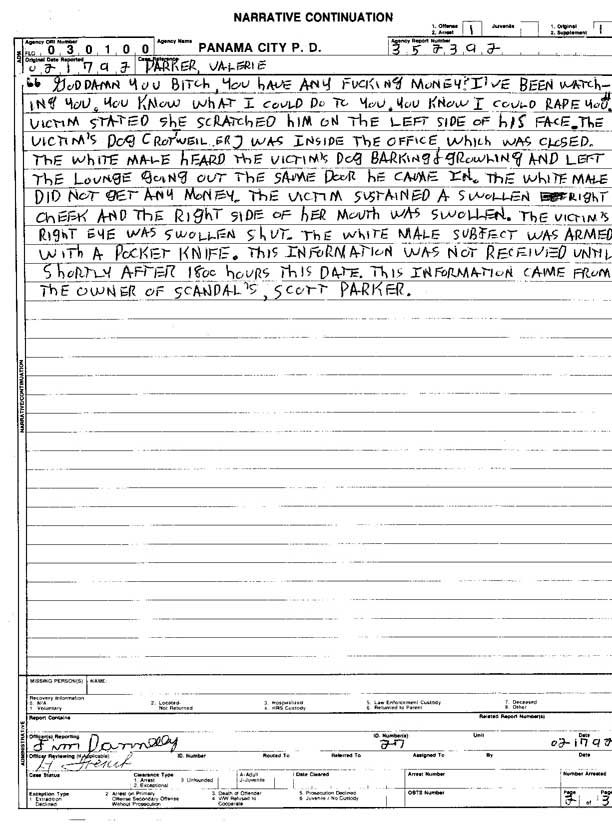 NARRATIVE CONTINUATION
1. Offense 2. Arrest 1 Juvenile 1. Original 2. Supplement 1
Agency ORI Number Agency Name Agency Report Number
FLO 030100 PANAMA CITY P. D. 352392
Original Date Reported Case Reference
021792 PARKER, VALERIE
"GODDAMN YOU BITCH, YOU HAVE ANY FUCKING MONEY? I'VE BEEN WATCH-
ING YOU. YOU KNOW WHAT I COULD DO TO YOU. YOU KNOW I COULD RAPE YOU."
VICTIM STATED SHE SCRATCHED HIM ON THE LEFT SIDE OF HIS FACE. THE
VICTIM'S DOG (ROTWEILER) WAS INSIDE THE OFFICE WHICH WAS CLOSED.
THE WHITE MALE HEARD THE VICTIM'S DOG BARKING & GROWLING AND LEFT
THE LOUNGE GOING OUT THE SAME DOOR HE CAME IN. THE WHITE MALE
DID NOT GET ANY MONEY. THE VICTIM SUSTAINED A SWOLLEN RIGHT
CHEEK AND THE RIGHT SIDE OF HER MOUTH WAS SWOLLEN. THE VICTIM'S
RIGHT EYE WAS SWOLLEN SHUT. THE WHITE MALE SUBJECT WAS ARMED
WITH A POCKET KNIFE. THIS INFORMATION WAS NOT RECEIVED UNTIL
SHORTLY AFTER 1800 HOURS THIS DATE. THIS INFORMATION CAME FROM
THE OWNER OF SCANDAL'S, SCOTT PARKER.
ADM
NARRATIVE/CONTINUATION
MISSING PERSON(S) - NAME:
Recovery Information
0. N/A 2. Located- 3. Hospitalized 5. Law Enforcement Custody 7. Deceased
1. Voluntary Not Returned 4. HRS Custody 6. Returned to Parent 8. Other
Report Contains Related Report Number(s)
ADMINISTRATIVE
Officer(s) Reporting ID. Number(s) Unit Date
277 021792
Officer Reviewing (If Applicable) ID. Number Routed To Referred To Assigned To By Date
Case Status Clearance Type A-Adult Date Cleared Arrest Number Number Arrested
1. Arrest 3. Unfounded J-Juvenile
2. Exceptional
Exception Type 2. Arrest on Primary 3. Death of Offender 5. Prosecution Declined OBTS Number Page Page
1. Extradition Offense Secondary Offense 4. V/W Refused to 6. Juvenile / No Custody 2 of 3
Declined Without Prosecution Cooperate